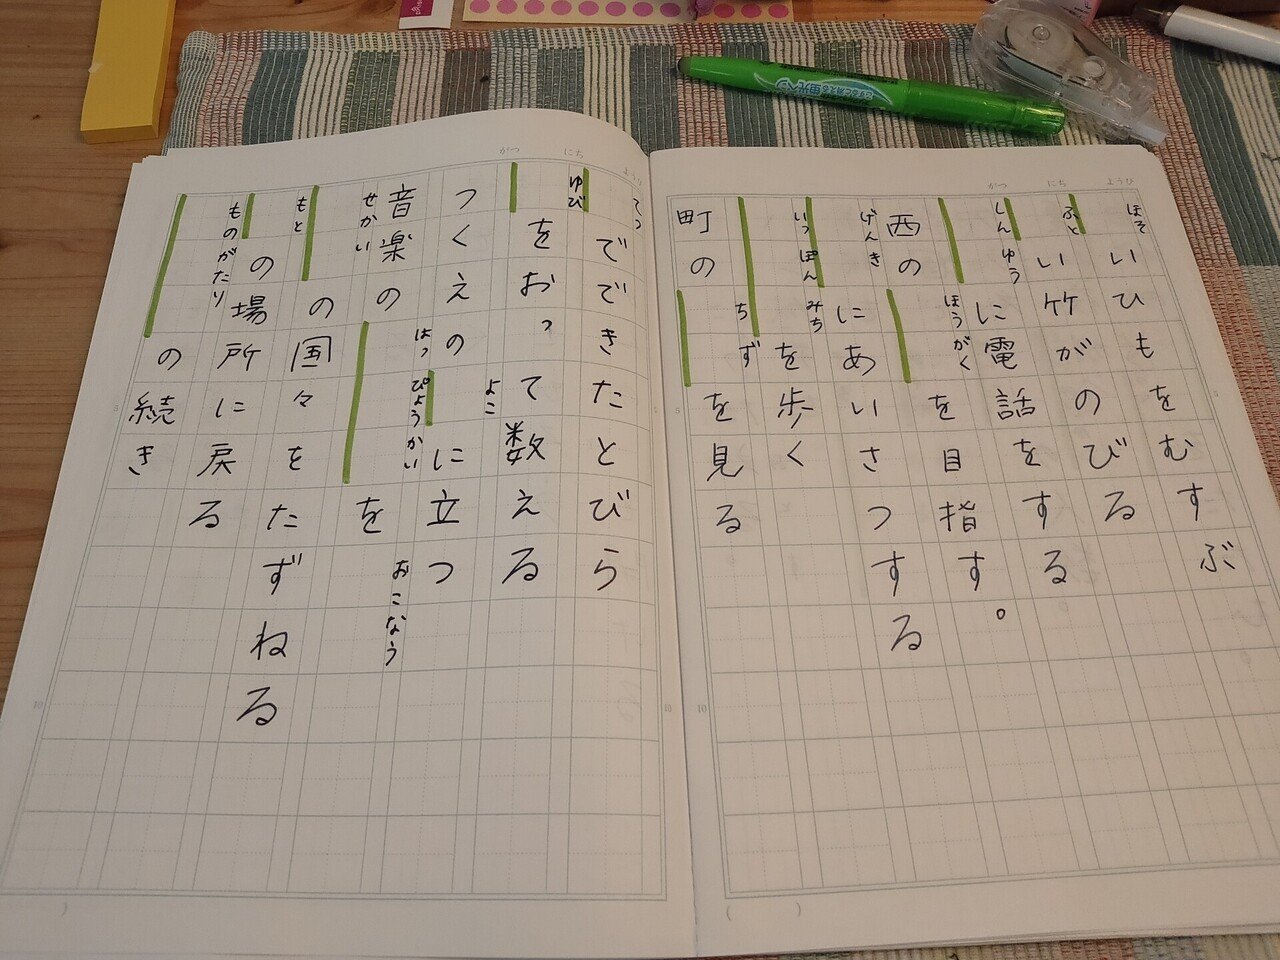 ようび
にち
がつ
ほそ
いひもをむすぶ
ふと
い竹がのびる
しんゆう
に電話をする
西の
ほうがく
を目指す。
げんき
にあいさつする
いっぽんみち
を歩く
町の
ちず
を見る
5
10
ようび
にち
がつ
てつ
でできたとびら
ゆび
をおって数える
つくえの
よこ
に立つ
音楽の
はっぴょうかい
を
おこなう
せかい
の国々をたずねる
もと
の場所に戻る
ものがたり
の続き
5
10